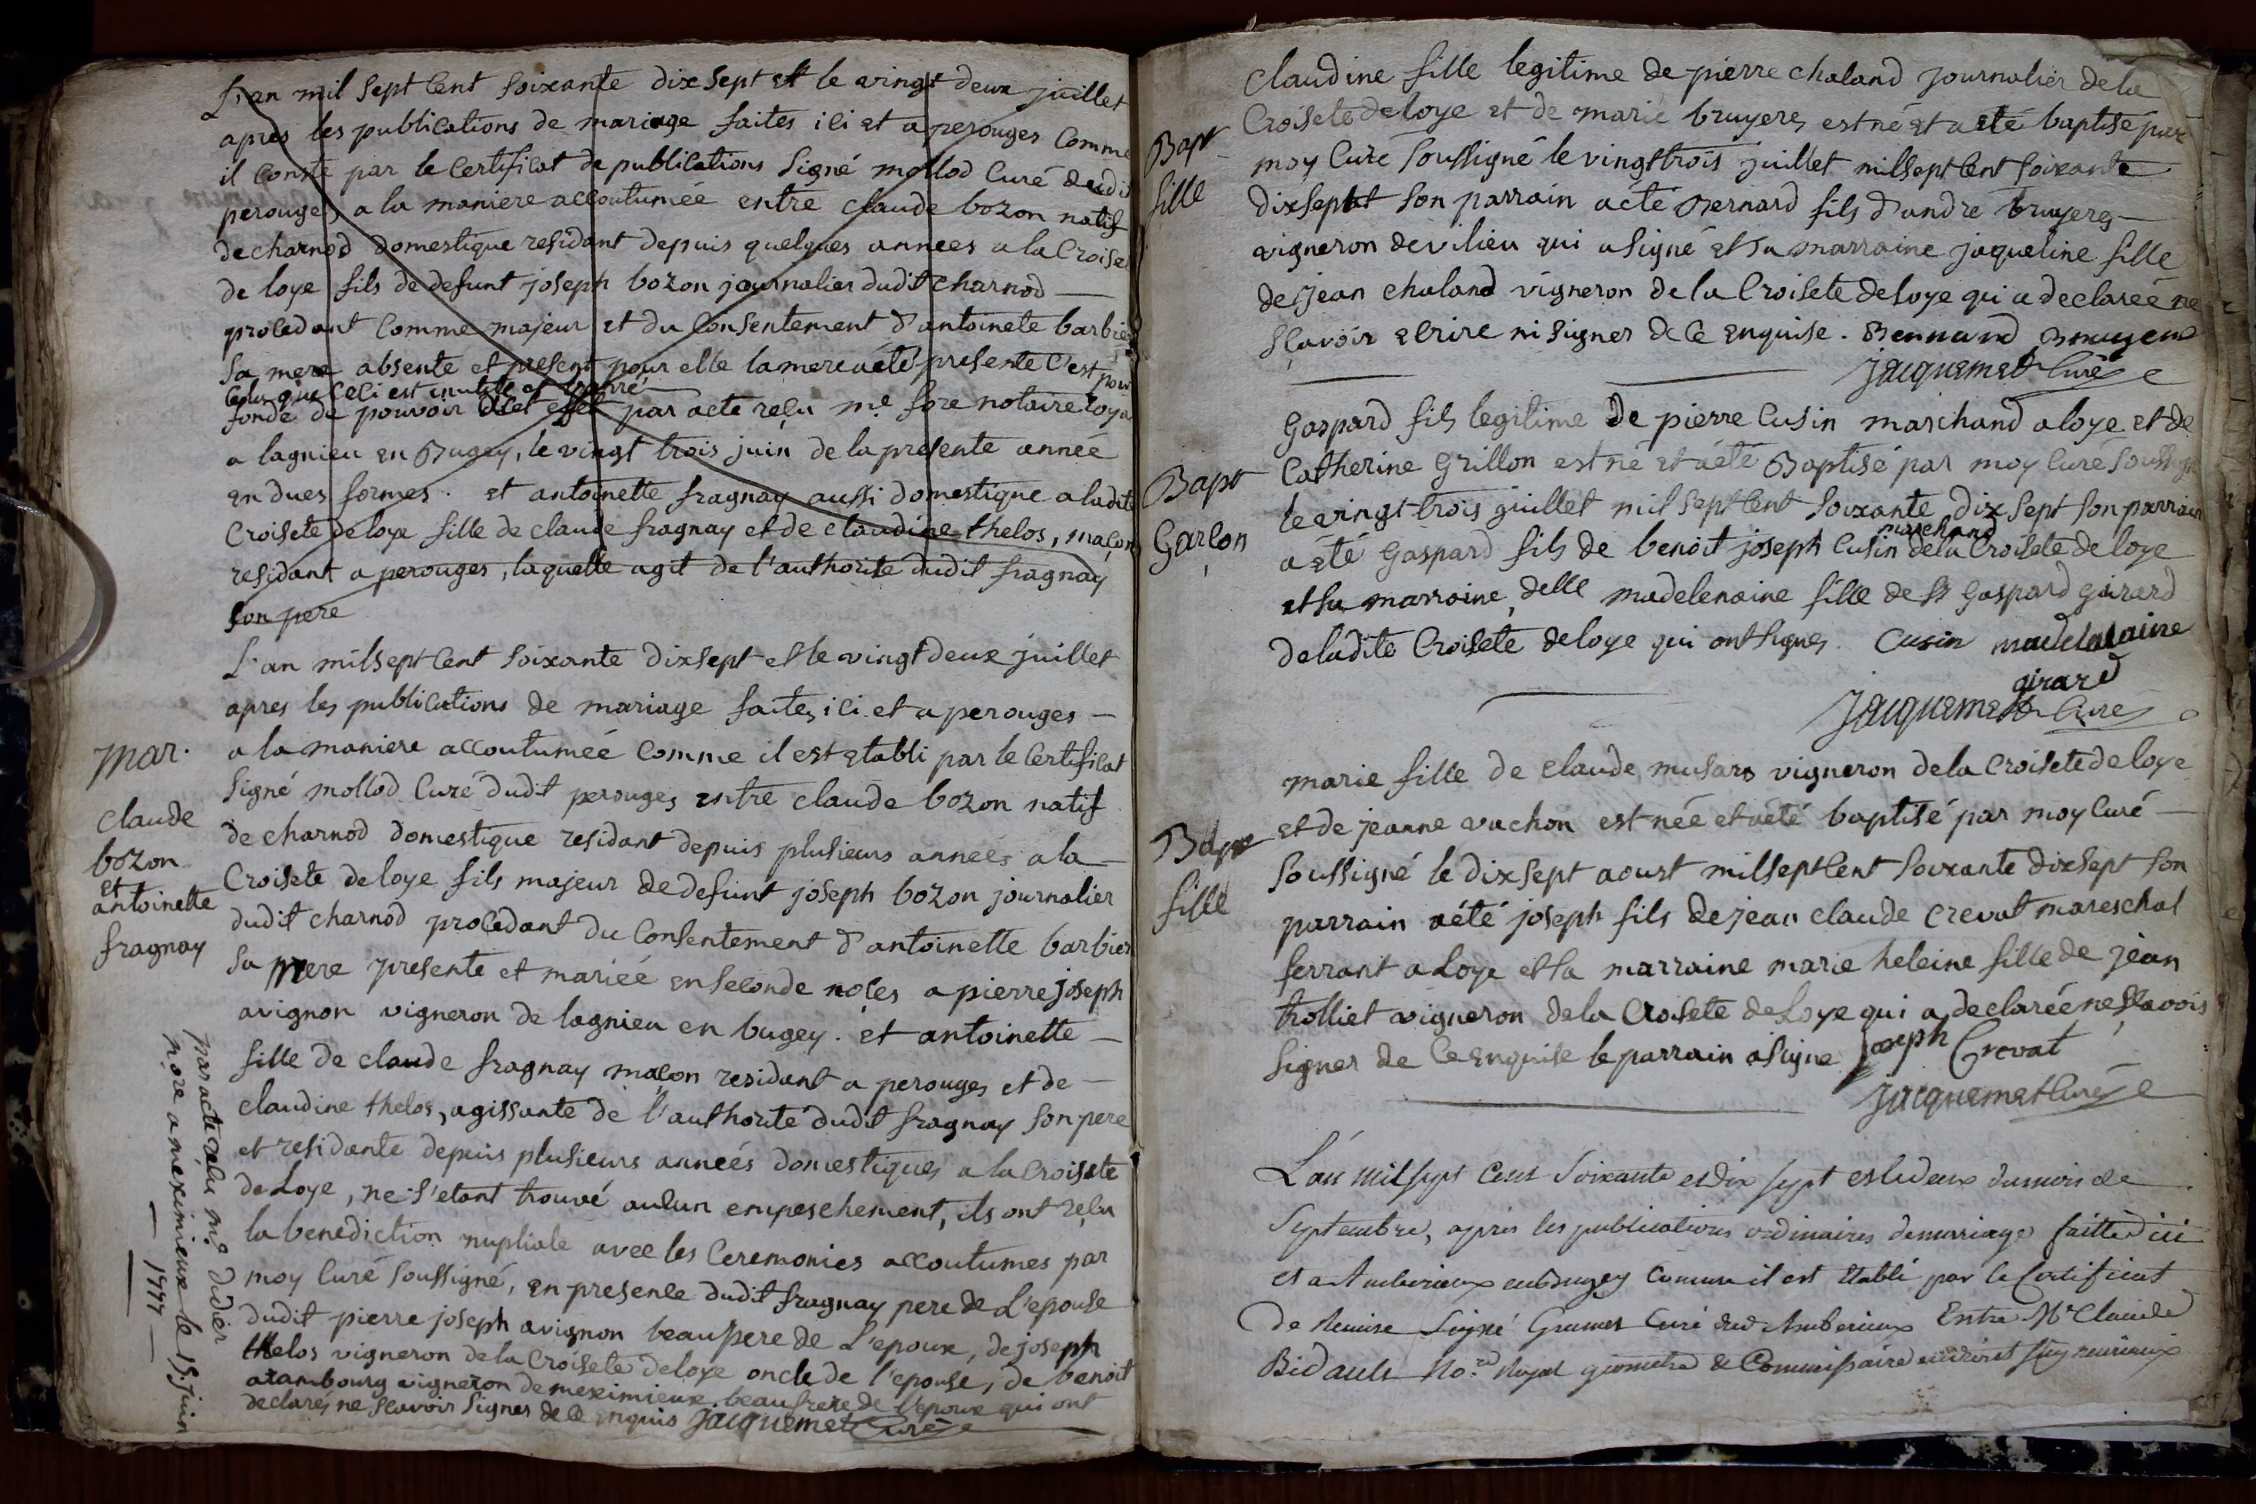 L'an mil sept Cent soixante dix sept et le vingt deux juillet
apres les publications de mariage faites ici et a perouges Comme
il Conste par le Certificat de publications signé mollod Curé dudit
perouges a la maniere accoutumée entre claude bozon natif
de charnod domestique residant depuis quelques annees a la Croisete
de loye fils de defunt joseph bozon journalier dudit charnod
procedant Comme majeur et du Consentement d'antoinete barbier
sa mere absente et present pour elle la mere a été presente C'est pour
ceci est inutile et barré
fondé de pouvoir a cet effet par acte reçu me fore notaire royal
a lagnieu en Bugey, le vingt trois juin de la presente année
en dues formes. et antoinette fragnay aussi domestique a ladite
Croisete de loye fille de claude fragnay et de claudine thelos, maçon
residant a perouges, laquelle agit de l'authorité dudit fragnay
son pere
L'an mil sept Cent soixante dix sept et le vingt deux juillet
apres les publications de mariage faites ici et a perouges
a la maniere accoutumée Comme il est etabli par le Certificat
signé mollod Curé dudit perouges entre claude bozon natif
de charnod domestique residant depuis plusieurs années a la
Croisete de loye fils majeur de defunt joseph bozon journalier
dudit charnod procedant du Consentement d'antoinette barbier
sa mere presente et mariée en seconde noces a pierre joseph
avignon vigneron de lagnieu en bugey. et antoinette
fille de claude fragnay maçon residant a perouges et de
claudine thelos, agissante de l'authorité dudit fragnay son pere
et residante depuis plusieurs années domestiques a la Croisete
de Loye, ne s'etant trouvé auCun empeschement, ils ont reçu
la benediction nuptiale avec les Ceremonies accoutumes par
moy Curé soussigné, en presence dudit fragnay pere de L'epouse
dudit pierre joseph avignon beaupere de L'epoux, de joseph
thelos vigneron de la Croisete de loye oncle de l'epouse, de benoit
arambourg vigneron de meximieux beaufrere de l'epoux qui ont
declarés ne sçavoir signer de ce enquis jacquemet Curé
mar.
claude
bozon
et
antoinette
fragnay
par acte reçu me didier
nore a meximieux le 15 juin
1777
Claudine fille legitime de pierre chaland journalier de la
Croisete de loye et de marie bruyeres est né et a eté baptisé par
moy Curé soussigné le vingt trois juillet mil sept Cent soixante
dix sept son parrain a été Bernard fils d'andre bruyeres
vigneron de vilieu qui a signé et sa marraine jaqueline fille
de jean chaland vigneron de la Croisete de loye qui a declareé ne
sçavoir ecrire ni signer de Ce enquise. Bennard Bruyere
jacquemet Curé
Bapt
fille
Gaspard fils legitime de pierre Cusin marchand a loye et de
Catherine Grillon est né et a été Baptisé par moy Curé soussigné
le vingt trois juillet mil sept Cent soixante dix sept son parrain
marchand
a eté Gaspard fils de benoit joseph Cusin de la Croisete de loye
et sa marraine delle madelenaine fille de sr Gaspard Girard
de ladite Croisete de loye qui ont signes. Cusin madelalaine
girard
jacquemet Curé
Bapt
Garcon
marie fille de claude musars vigneron de la Croisete de loye
et de jeanne vachon est née et a été baptisé par moy Curé
soussigné le dix sept aoust mil sept Cent soixante dix sept son
parrain a été joseph fils de jean claude Crevat mareschal
ferrant a Loye et sa marraine marie heleine fille de jean
trolliet vigneron de la Croisete de Loye qui a declarée ne sçavoir
signer de Ce enquise le parrain a signe Joseph Crevat
jacquemet Curé
Bapt
fille
L'an mil sept Cent soixante et dix sept et le deux du mois de
Septembre, apres les publications ordinaires de mariage faitte d'ici
et a Amberieux en bugey Comme il est établi par le Certificat
De Remise Signé Grumet Curé dud Amberieux Entre Mr Claude
Bidault No.re Royal geometre & Commissaire